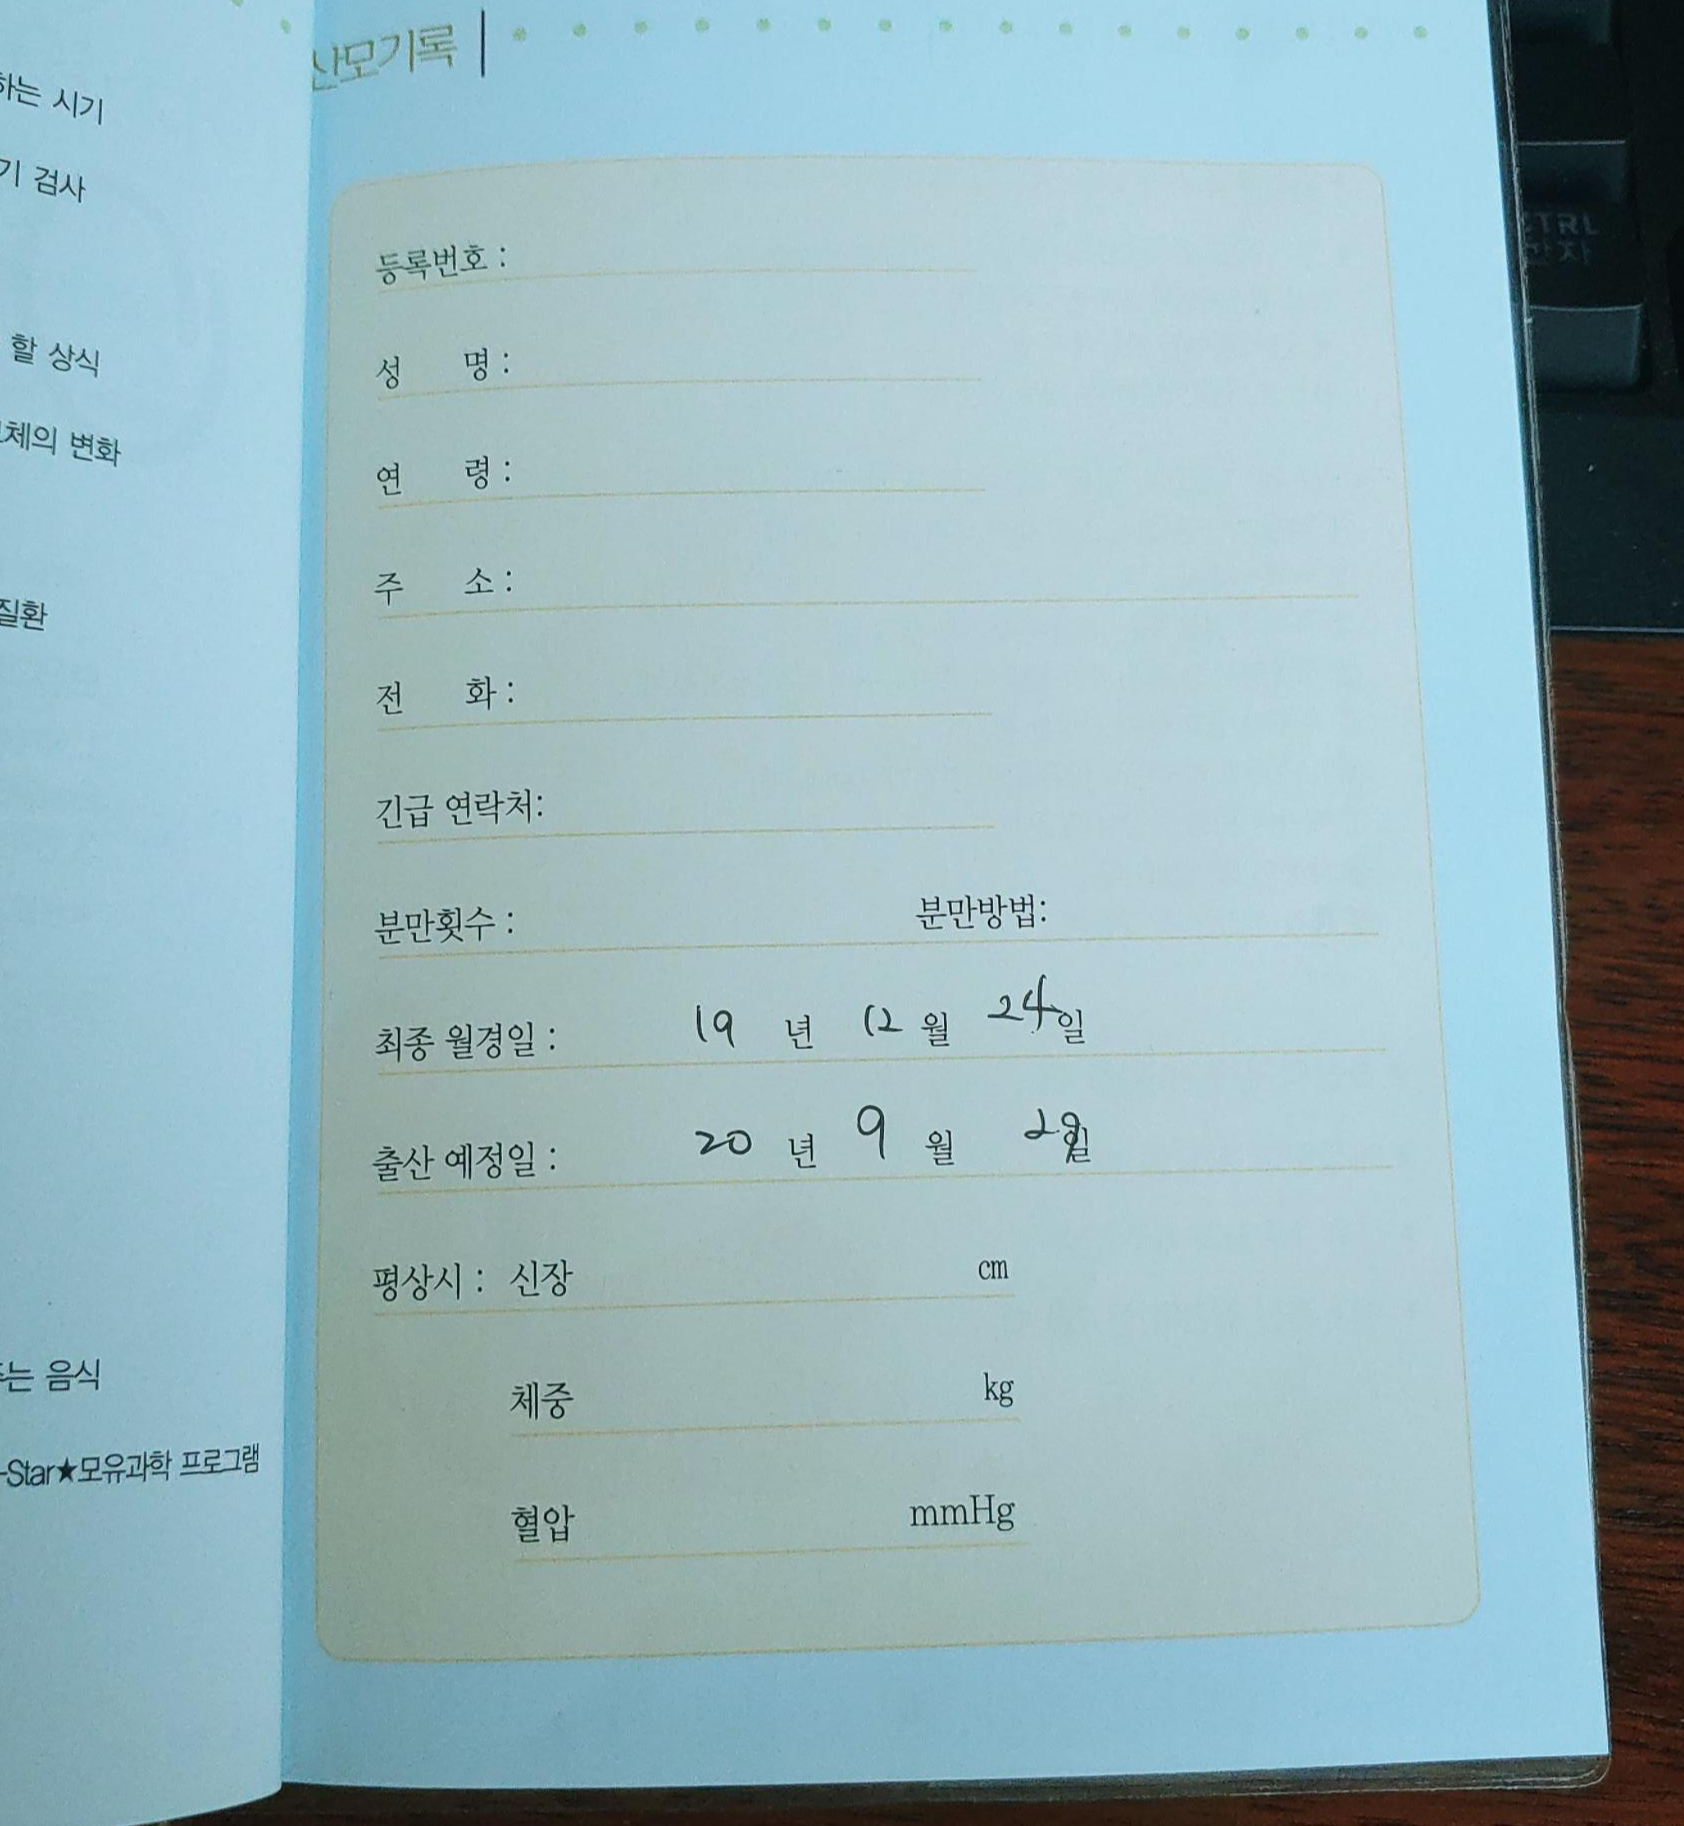 하는 시기
기 검사
할 상식
체의 변화
질환
는 음식
-Star★모유과학 프로그램
산모기록
등록번호 :
성 명 :
연 령 :
주 소 :
전 화 :
긴급 연락처:
분만횟수 : 분만방법:
최종 월경일 : 19 년 12 월 24 일
출산 예정일 : 20 년 9 월 29 일
평상시 : 신장 cm
체중 kg
혈압 mmHg
CTRL
한자